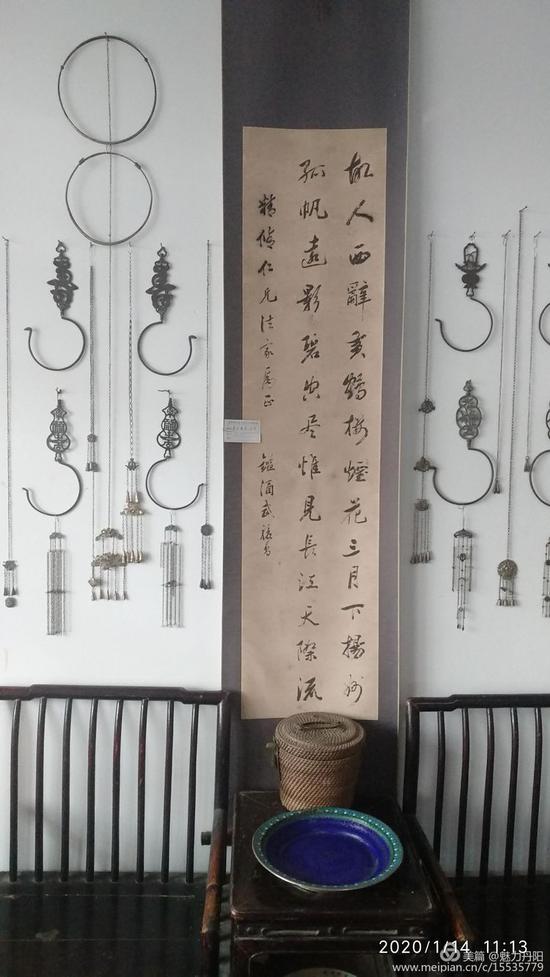 故人西辭黄鶴樓煙花三月下揚州
孤帆遠影碧空尽惟見長江天際流
仁兄法家正
2020/1/14 11:13
美篇 @魅力丹阳
www.meipian.cn/c/15535779